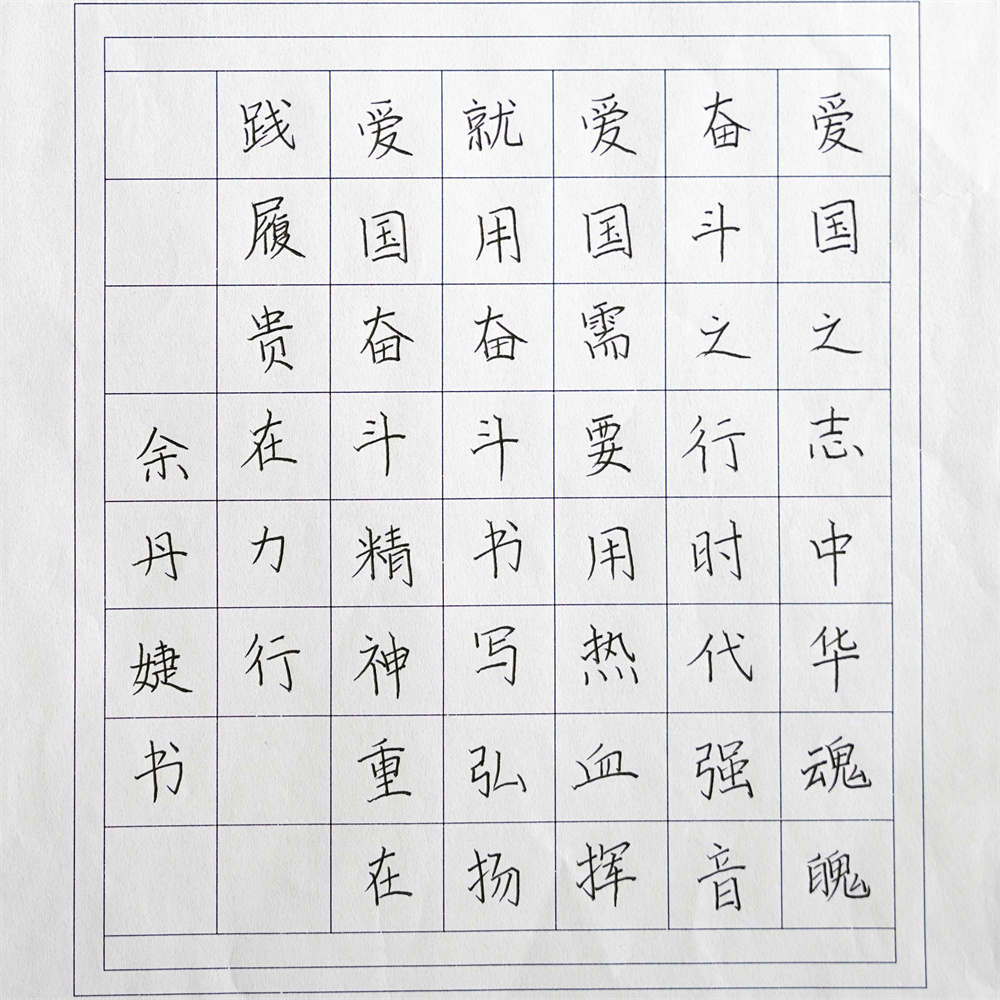 爱国之志中华魂魄
奋斗之行时代强音
爱国需要用热血挥
就用奋斗书写弘扬
爱国奋斗精神重在
践履贵在力行
余丹婕书